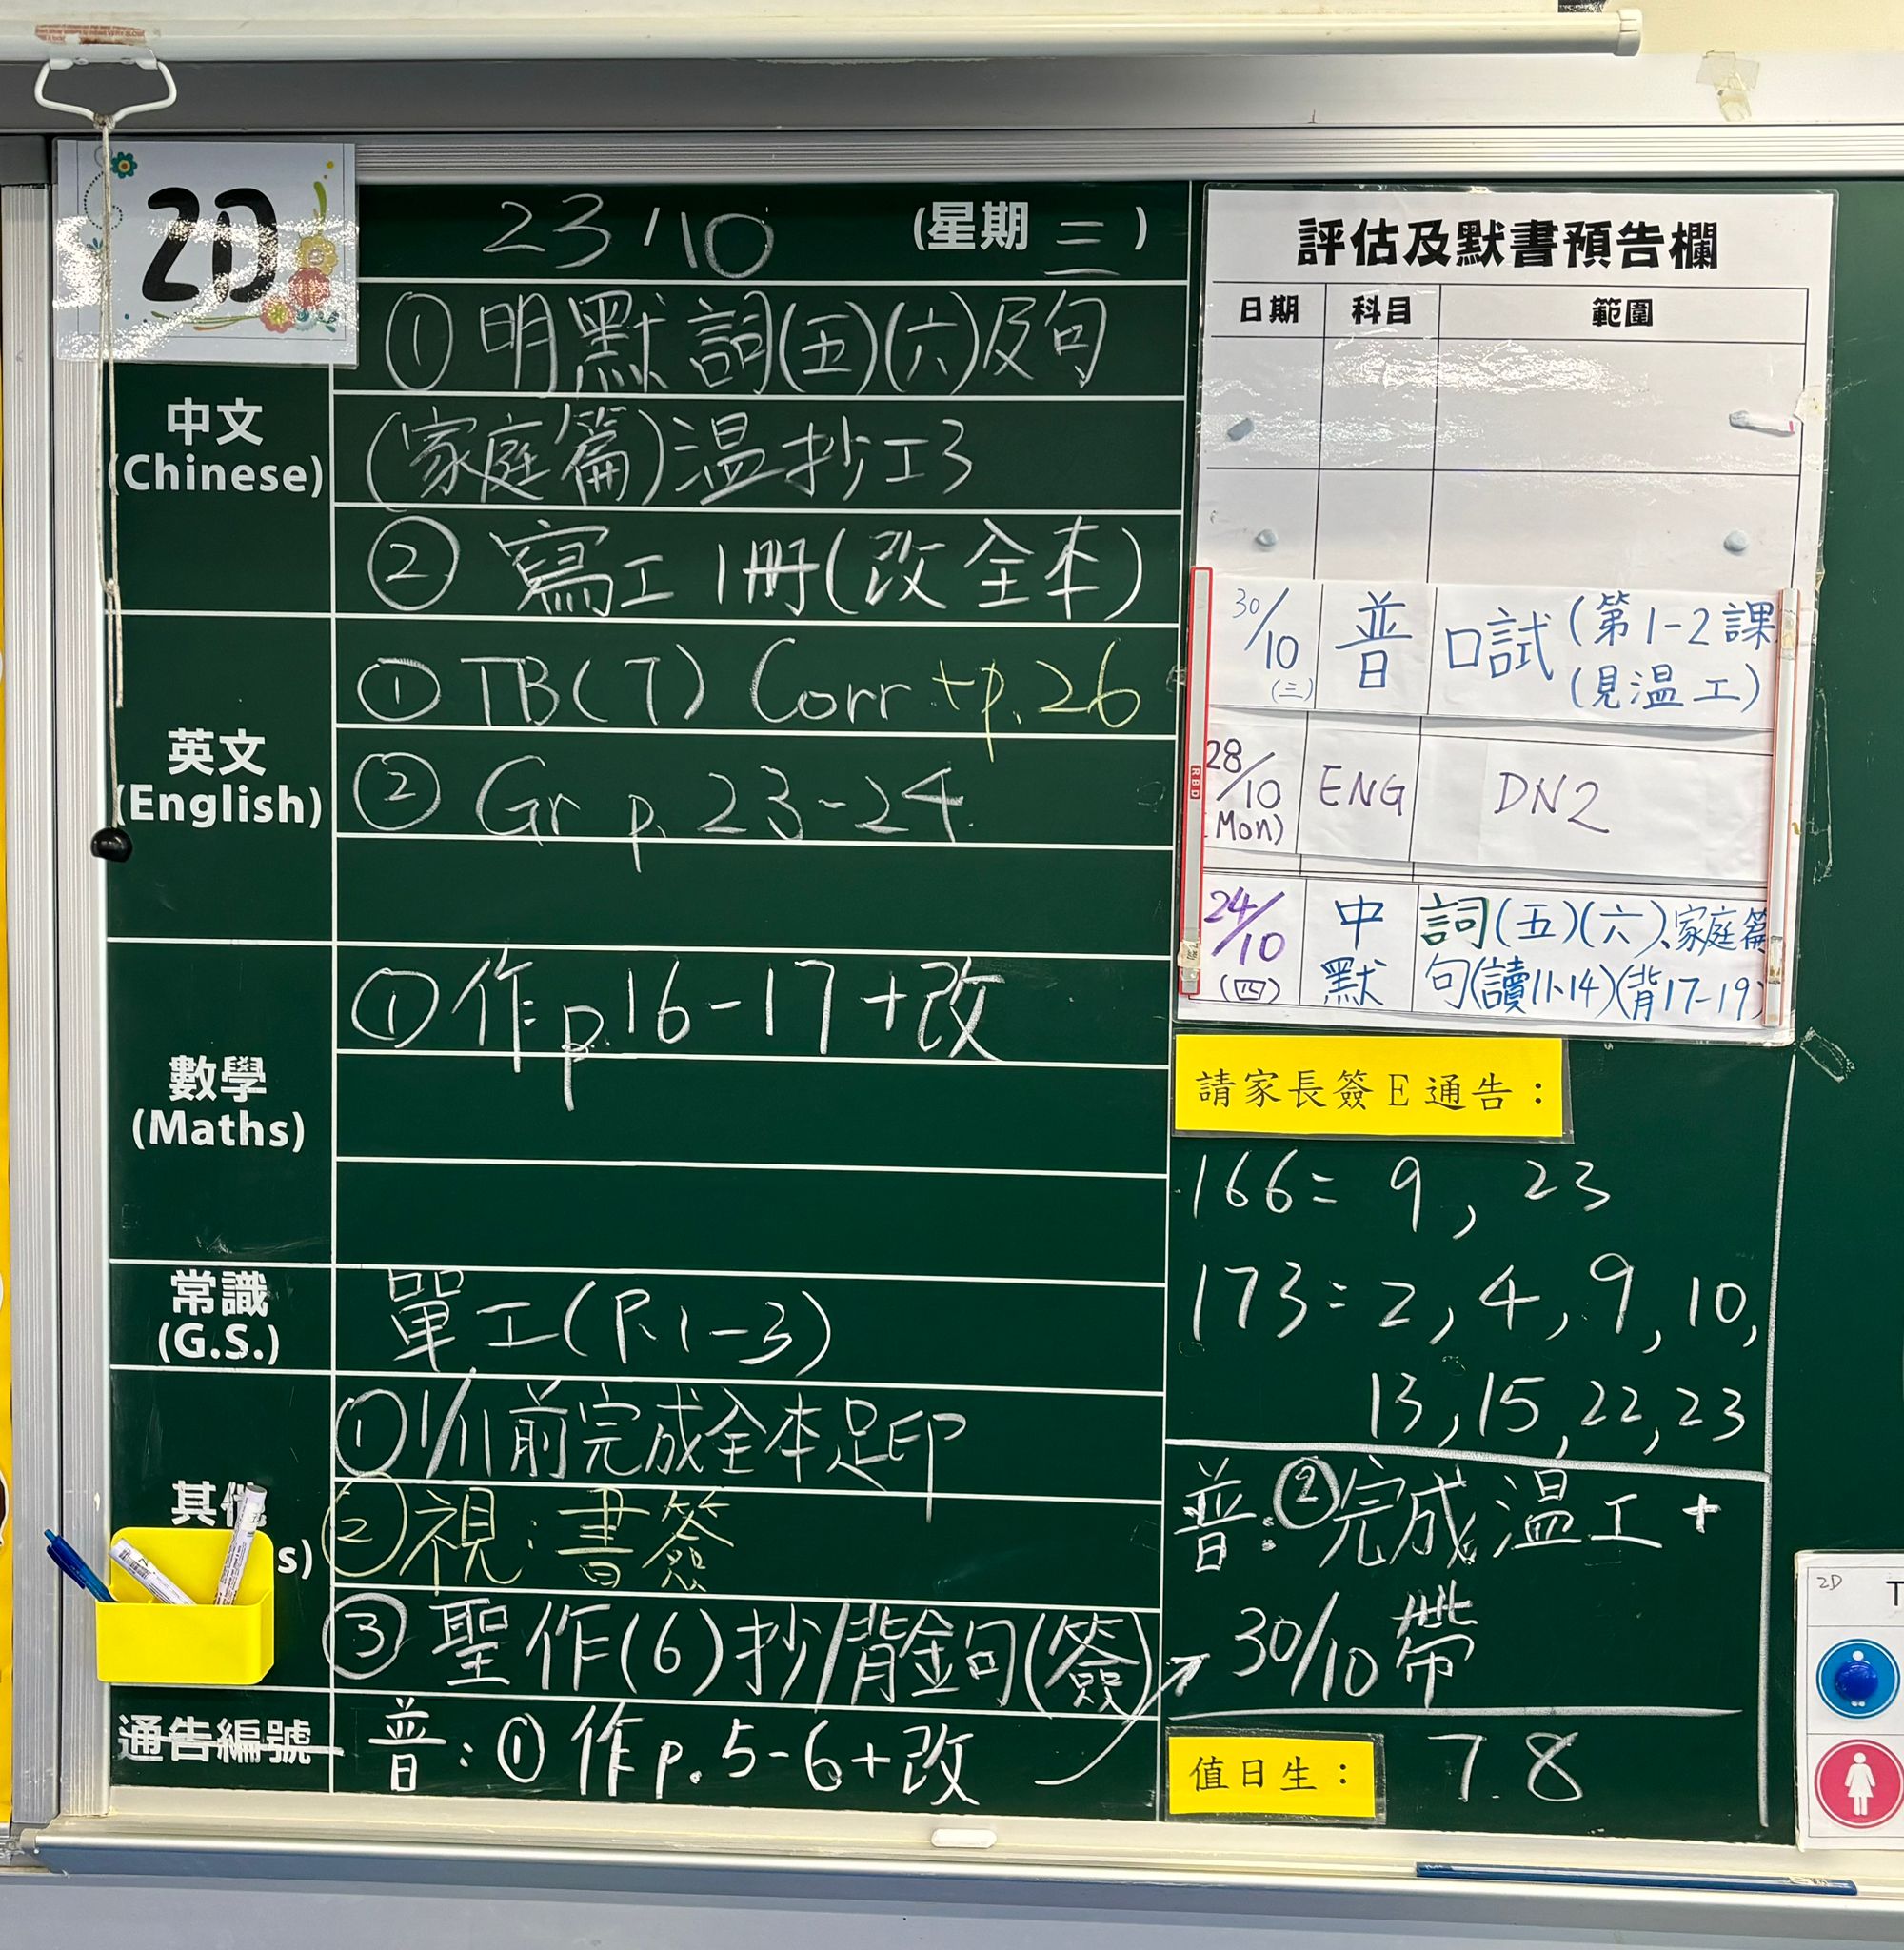 2D
23/10 (星期三)
中文
(Chinese)
① 明默詞(五)(六)及句
(家庭篇)溫抄工3
② 寫工1冊(改全本)
英文
(English)
① TB(7) Corr +p.26
② Gr p.23-24
數學
(Maths)
① 作p.16-17+改
常識
(G.S.)
單工(P.1-3)
其他
s)
① 1/11前完成全本足印
② 視:書簽
③ 聖作(6)抄/背金句(簽)
通告編號
普:① 作p.5-6+改
評估及默書預告欄
日期 科目 範圍
30/10 (三) 普 口試(第1-2課
(見溫工)
28/10 (Mon) ENG DN2
24/10 (四) 中默 詞(五)(六)、家庭篇
句(讀11-14)(背17-19)
RBD
請家長簽E通告:
166= 9, 23
173= 2, 4, 9, 10,
13, 15, 22, 23
普:②完成溫工+
30/10帶
值日生: 7.8
2D